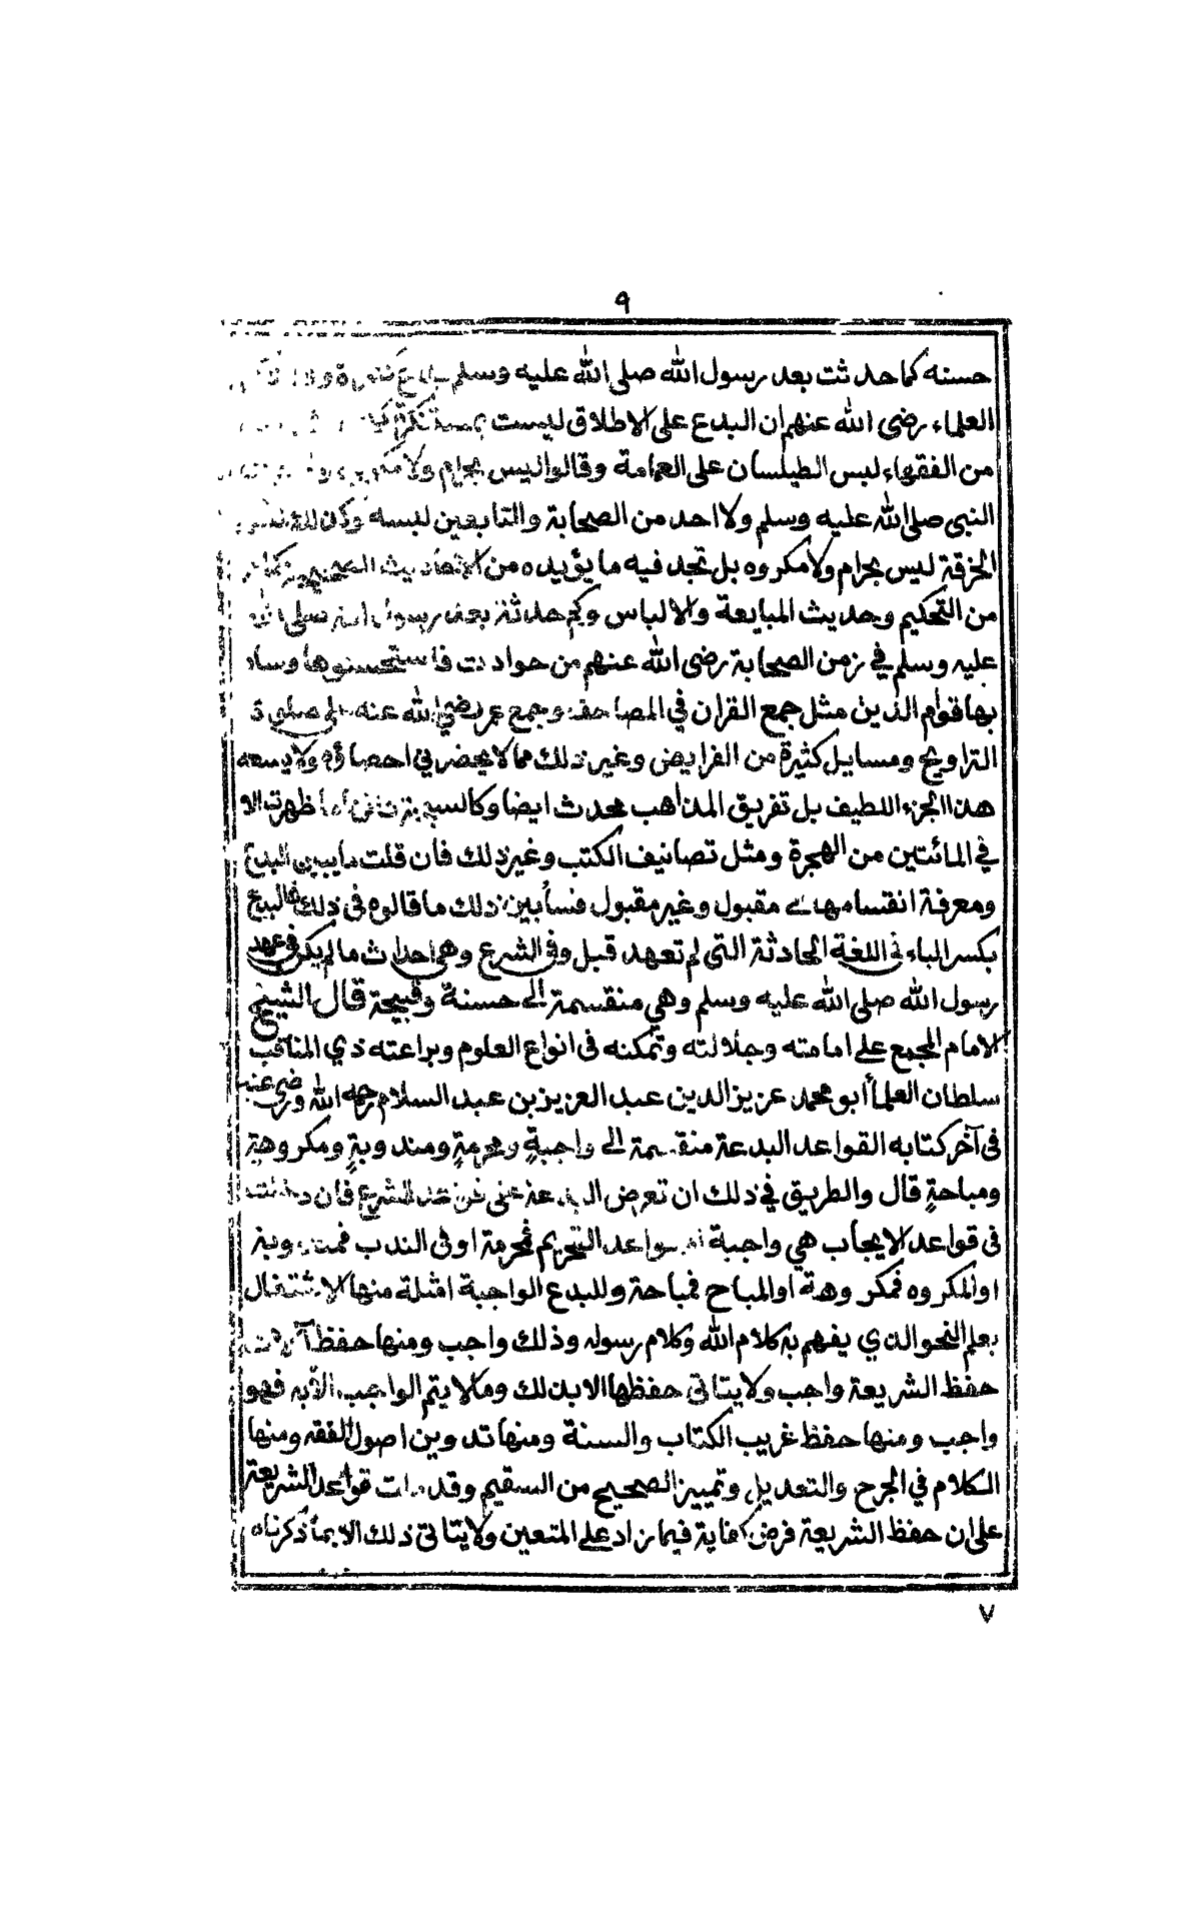 ٩
حسنه كما حدثت بعد رسول الله صلى الله عليه وسلم
العلماء رضى الله عنهم ان البدع على الاطلاق ليست
من الفقهاء لبس الطيلسان على العمامة وقالوا ليس بحرام ولا
النبى صلى الله عليه وسلم ولا احد من الصحابة والتابعين لبسه
الخرقة ليس بحرام ولا مكروه بل تجد فيه ما يؤيده من الاحاديث الصحيحة
من التحكيم وحديث المبايعة والالباس وكم حدثت بعد رسول الله صلى الله
عليه وسلم في زمن الصحابة رضى الله عنهم من حوادث فاستحسنوها وساد
بها قوام الدين مثل جمع القران في المصاحف وجمع عمر رضي الله عنه على صلوة
التراويح ومسايل كثيرة من الفرايض وغير ذلك مما لا يحضرني احصاؤه ولا يسعه
هذا الجزء اللطيف بل تفريق المذاهب محدث ايضا وكالسبحة ظهرت الا
في المائتين من الهجرة ومثل تصانيف الكتب وغير ذلك فان قلت ما يبين البدع
ومعرفة انقسامها على مقبول وغير مقبول فسأبين ذلك ما قالوه فى ذلك فالبدع
بكسر الباء فى اللغة الحادثة التى لم تعهد قبل وفى الشرع وهى احداث ما لم يكن فى عهد
رسول الله صلى الله عليه وسلم وهي منقسمة الى حسنة وقبيحة قال الشيخ
الامام المجمع على امامته وجلالته وتمكنه فى انواع العلوم وبراعته ذي المناقب
سلطان العلمأ أبو محمد عزيز الدين عبد العزيز بن عبد السلام رحمه الله ورضى عنه
فى آخر كتابه القواعد البدعة منقسمة الى واجبةٍ ومحرمةٍ ومندوبةٍ ومكروهةٍ
ومباحةٍ قال والطريق في ذلك ان تعرض البدعة على قواعد الشرع فان دخلت
فى قواعد الايجاب هي واجبة او قواعد التحريم فمحرمة او فى الندب فمندوبة
او المكروه فمكروهة او المباح فمباحة وللبدع الواجبة امثلة منها الاشتغال
بعلم النحو الذي يفهم به كلام الله وكلام رسوله وذلك واجب ومنها حفظ
حفظ الشريعة واجب ولا يتاتى حفظها الا بذلك وما لا يتم الواجب الا به فهو
واجب ومنها حفظ غريب الكتاب والسنة ومنها تدوين اصول الفقه ومنها
الكلام في الجرح والتعديل وتمييز الصحيح من السقيم وقد دلت قواعد الشريعة
على ان حفظ الشريعة فرض كفاية فيما زاد على المتعين ولا يتاتى ذلك الا بما ذكرناه
٧